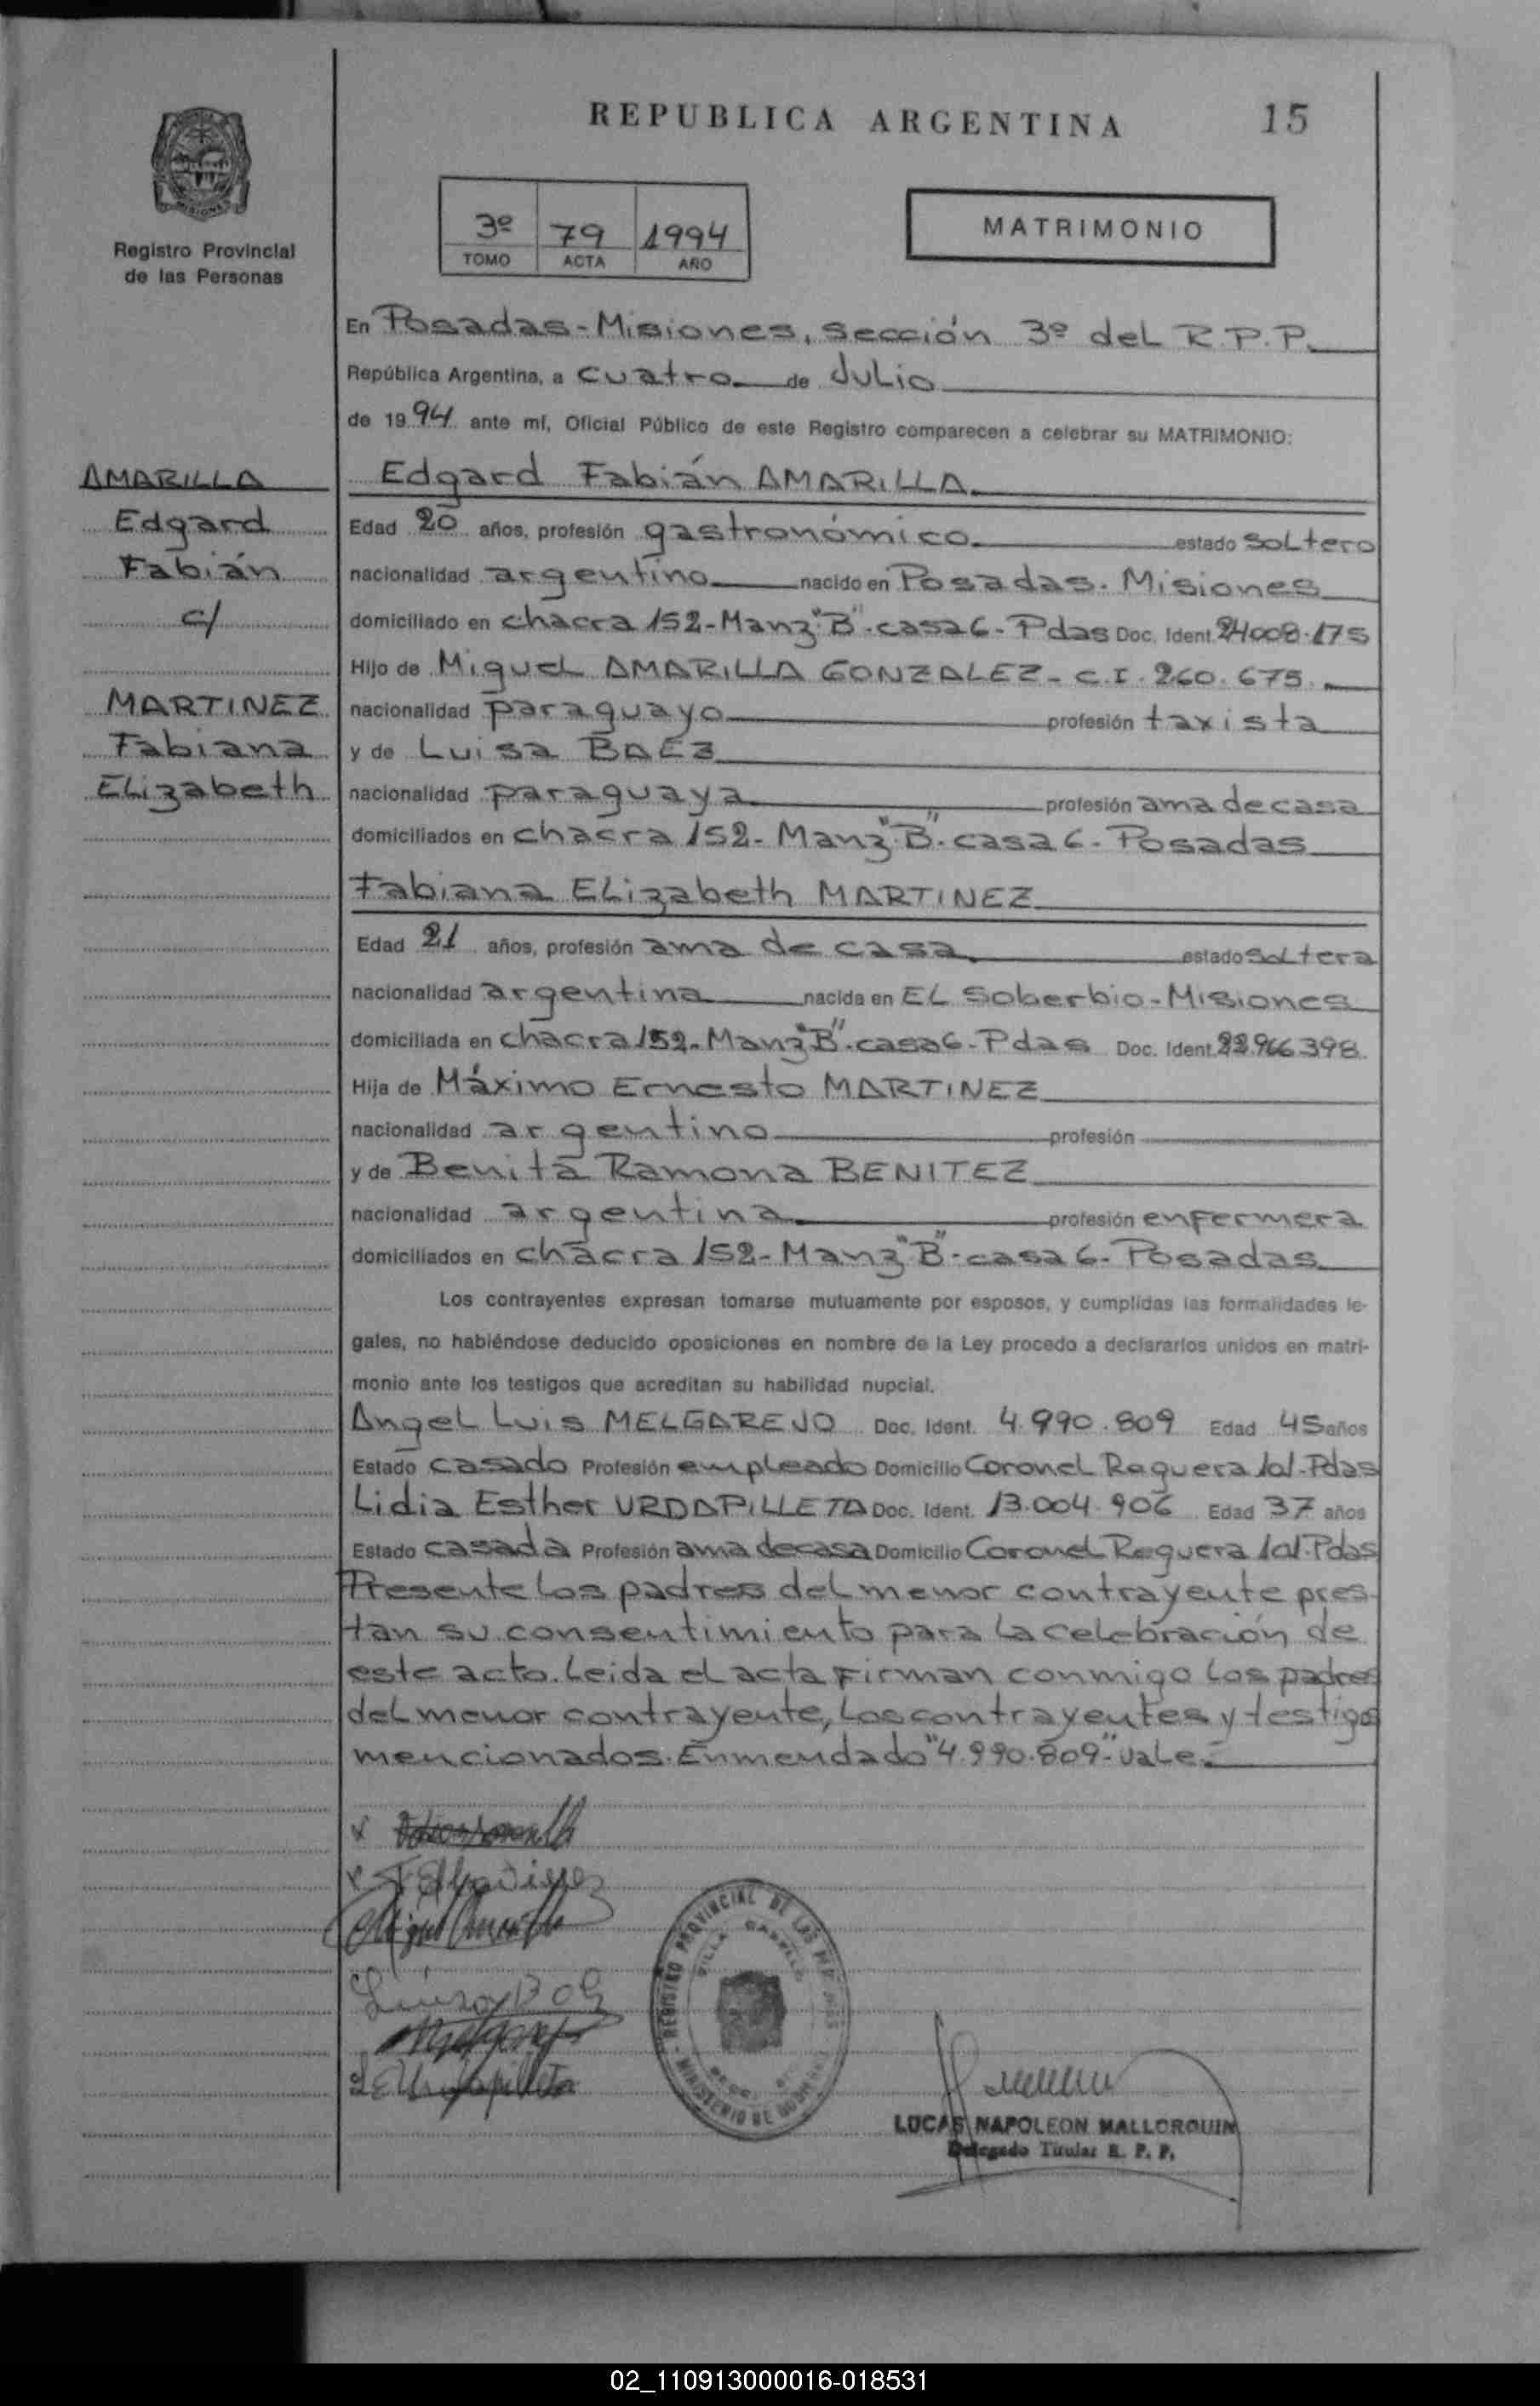 REPUBLICA ARGENTINA
15
MISIONES
Registro Provincial
de las Personas
3º 79 1994
TOMO ACTA AÑO
MATRIMONIO
En Posadas-Misiones, sección 3º del R.P.P.
República Argentina, a cuatro de Julio
de 1994 ante mí, Oficial Público de este Registro comparecen a celebrar su MATRIMONIO:
AMARILLA
Edgard
Fabián
c/
MARTINEZ
Fabiana
Elizabeth
Edgard Fabián AMARILLA
Edad 20 años, profesión gastronómico estado soltero
nacionalidad argentino nacido en Posadas. Misiones
domiciliado en chacra 152-Manz"B".casa 6-Pdas Doc. Ident. 24008.175
Hijo de Miguel AMARILLA GONZALEZ - C.I. 260.675.
nacionalidad paraguayo profesión taxista
y de Luisa BAEZ
nacionalidad paraguaya profesión ama de casa
domiciliados en chacra 152- Manz"B". casa 6- Posadas
Fabiana Elizabeth MARTINEZ
Edad 21 años, profesión ama de casa estado soltera
nacionalidad argentina nacida en El Soberbio-Misiones
domiciliada en chacra 152-Manz"B".casa 6-Pdas Doc. Ident. 22.966.398.
Hija de Máximo Ernesto MARTINEZ
nacionalidad argentino profesión
y de Benita Ramona BENITEZ
nacionalidad argentina profesión enfermera
domiciliados en chacra 152-Manz"B"-casa 6-Posadas
Los contrayentes expresan tomarse mutuamente por esposos, y cumplidas las formalidades le-
gales, no habiéndose deducido oposiciones en nombre de la Ley procedo a declararlos unidos en matri-
monio ante los testigos que acreditan su habilidad nupcial.
Angel Luis MELGAREJO Doc. Ident. 4.990.809 Edad 45 años
Estado casado Profesión empleado Domicilio Coronel Reguera 101-Pdas
Lidia Esther URDAPILLETA Doc. Ident. 13.004.906 Edad 37 años
Estado casada Profesión ama de casa Domicilio Coronel Reguera 101-Pdas
Presente los padres del menor contrayente pres-
tan su consentimiento para la celebración de
este acto. Leida el acta firman conmigo los padres
del menor contrayente, los contrayentes y testigos
mencionados. Enmendado "4.990.809" Vale.
REGISTRO PROVINCIAL DE LAS
MINISTERIO DE
VILLA
LUCAS NAPOLEON MALLORQUIN
Delegado Titular R. P. P.
02_110913000016-018531